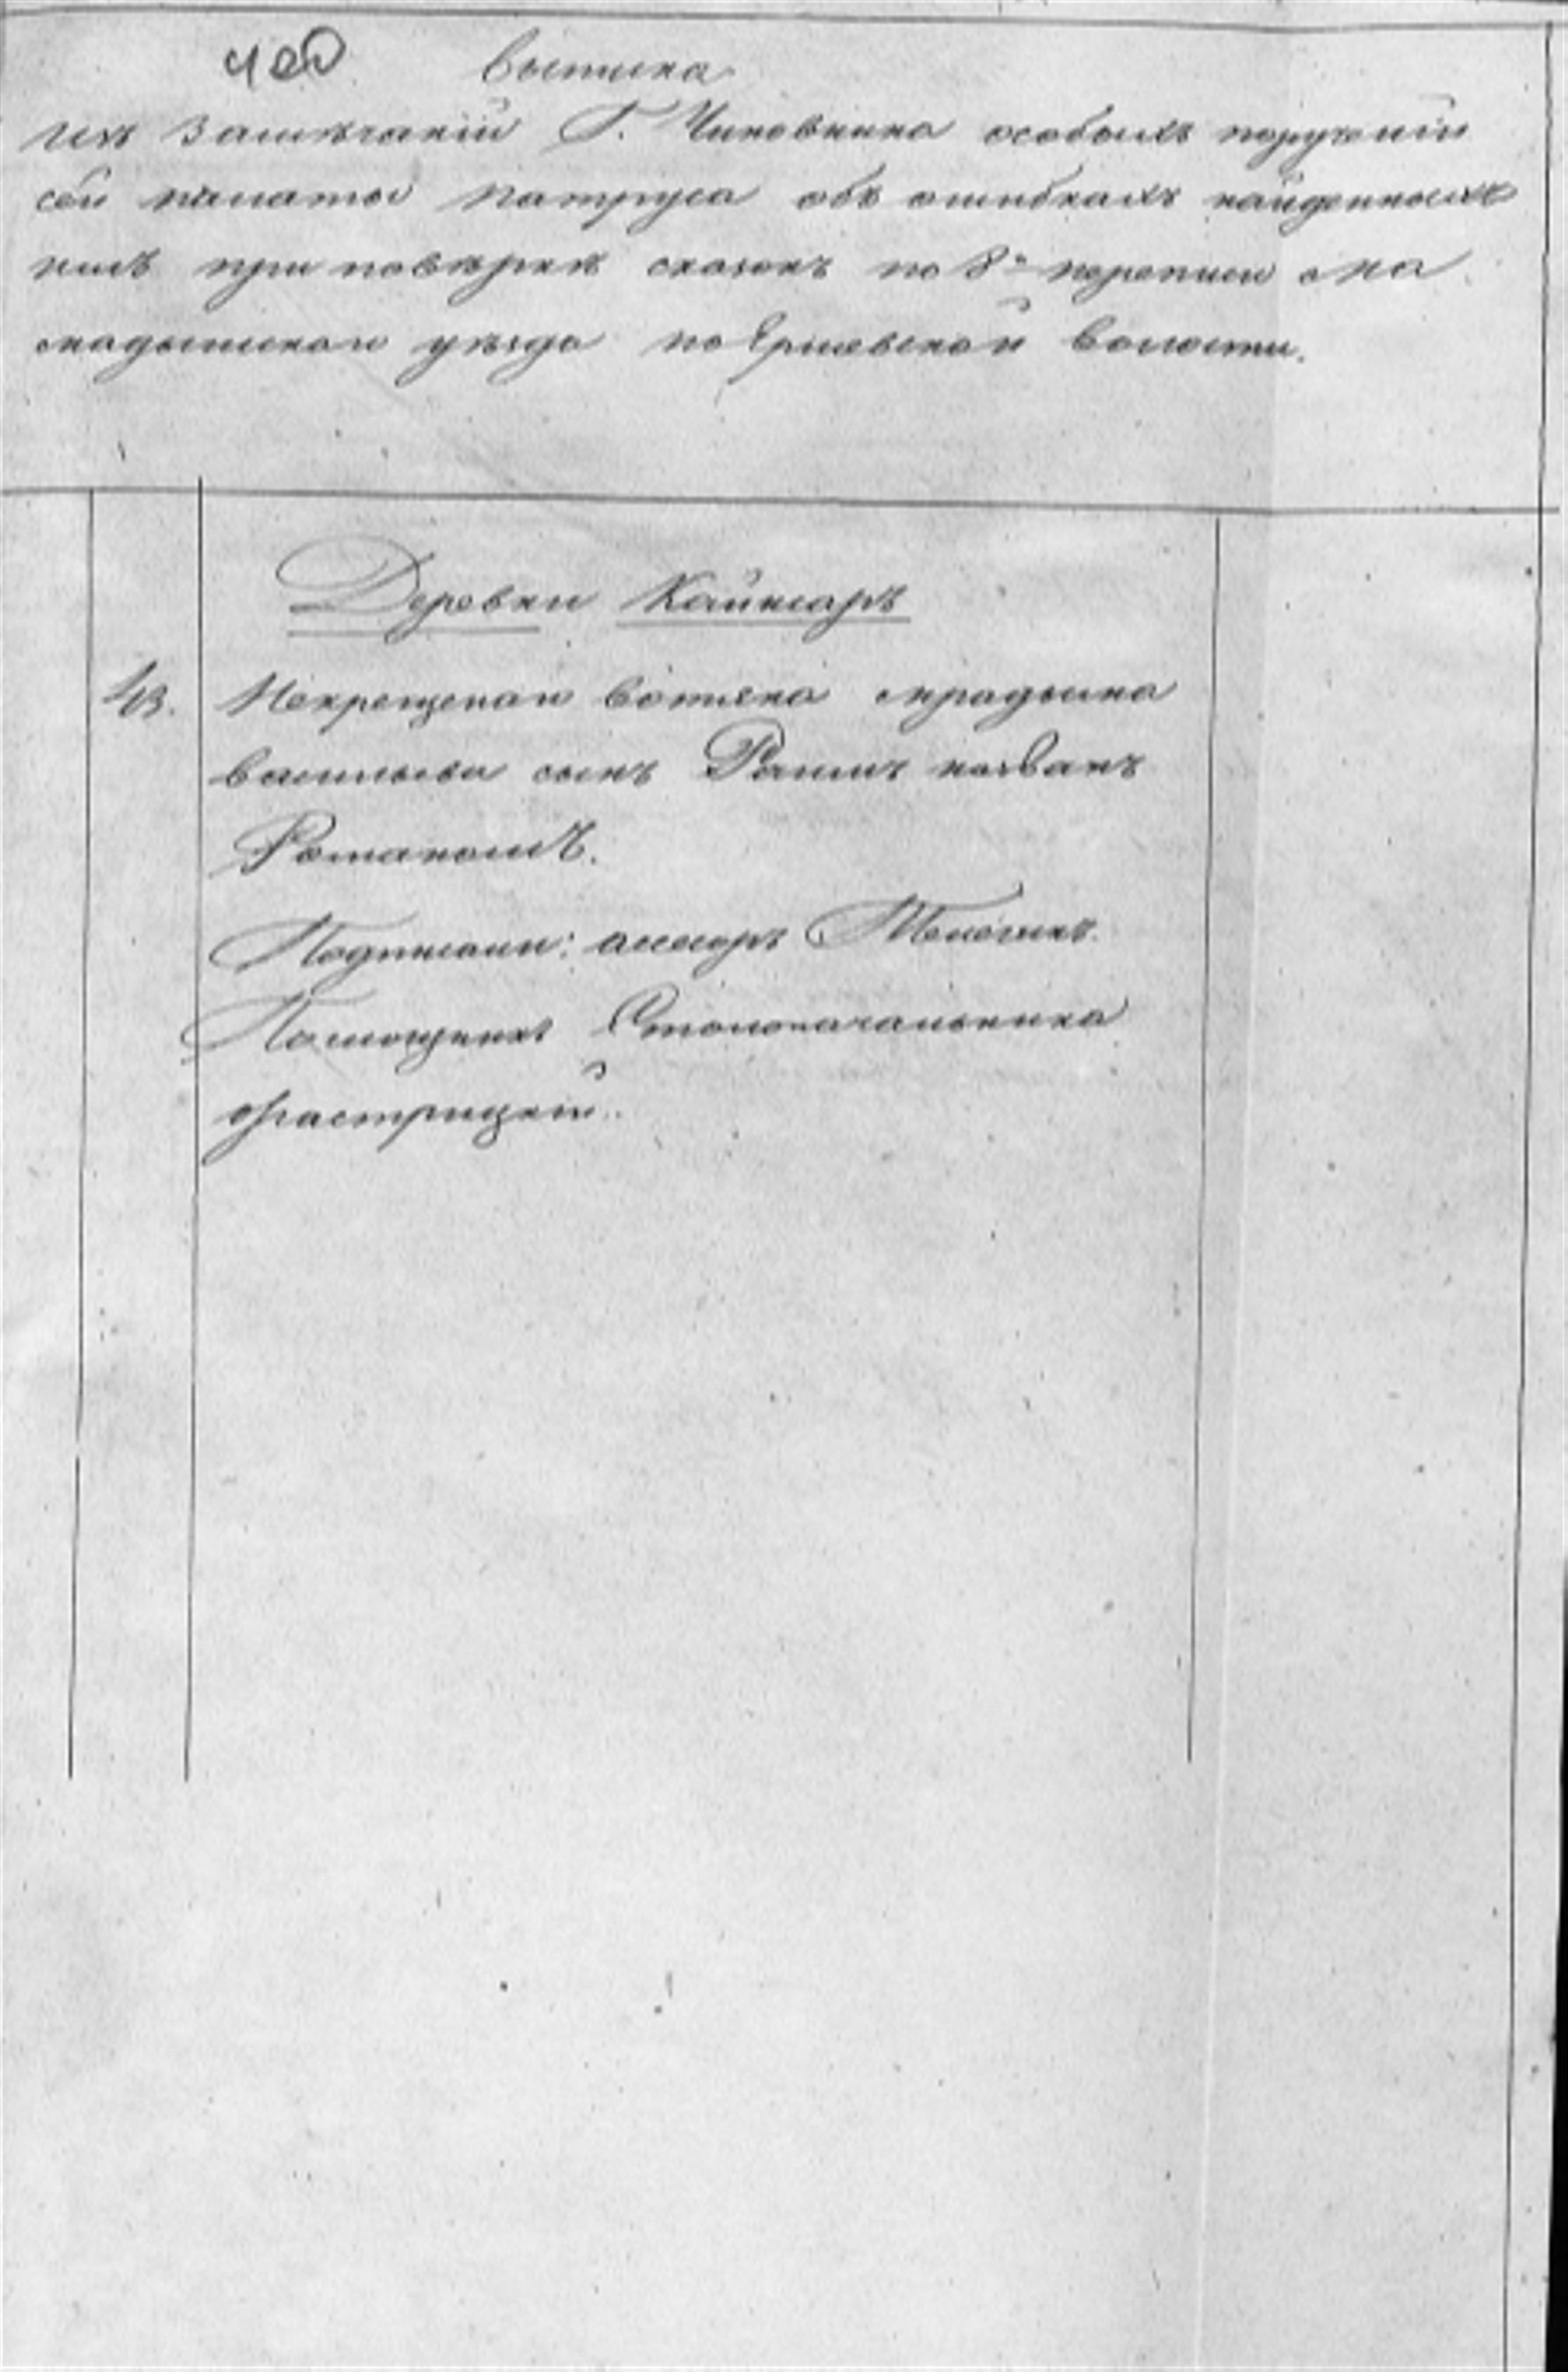 Выписка
изъ Замѣчаній Г. Чиновника особыхъ порученій
сей палаты Матруса объ ошибкахъ найденныхъ
имъ при повѣркѣ сказокъ по 8й переписи Ма
мадышскаго уѣзда по Ершевской волости.
Деревни Кайнсаръ
43. Некрещенаго вотяка
Васильева сынъ названъ
Романомъ.
Подписали: асесоръ
Помощникъ Столоначальника